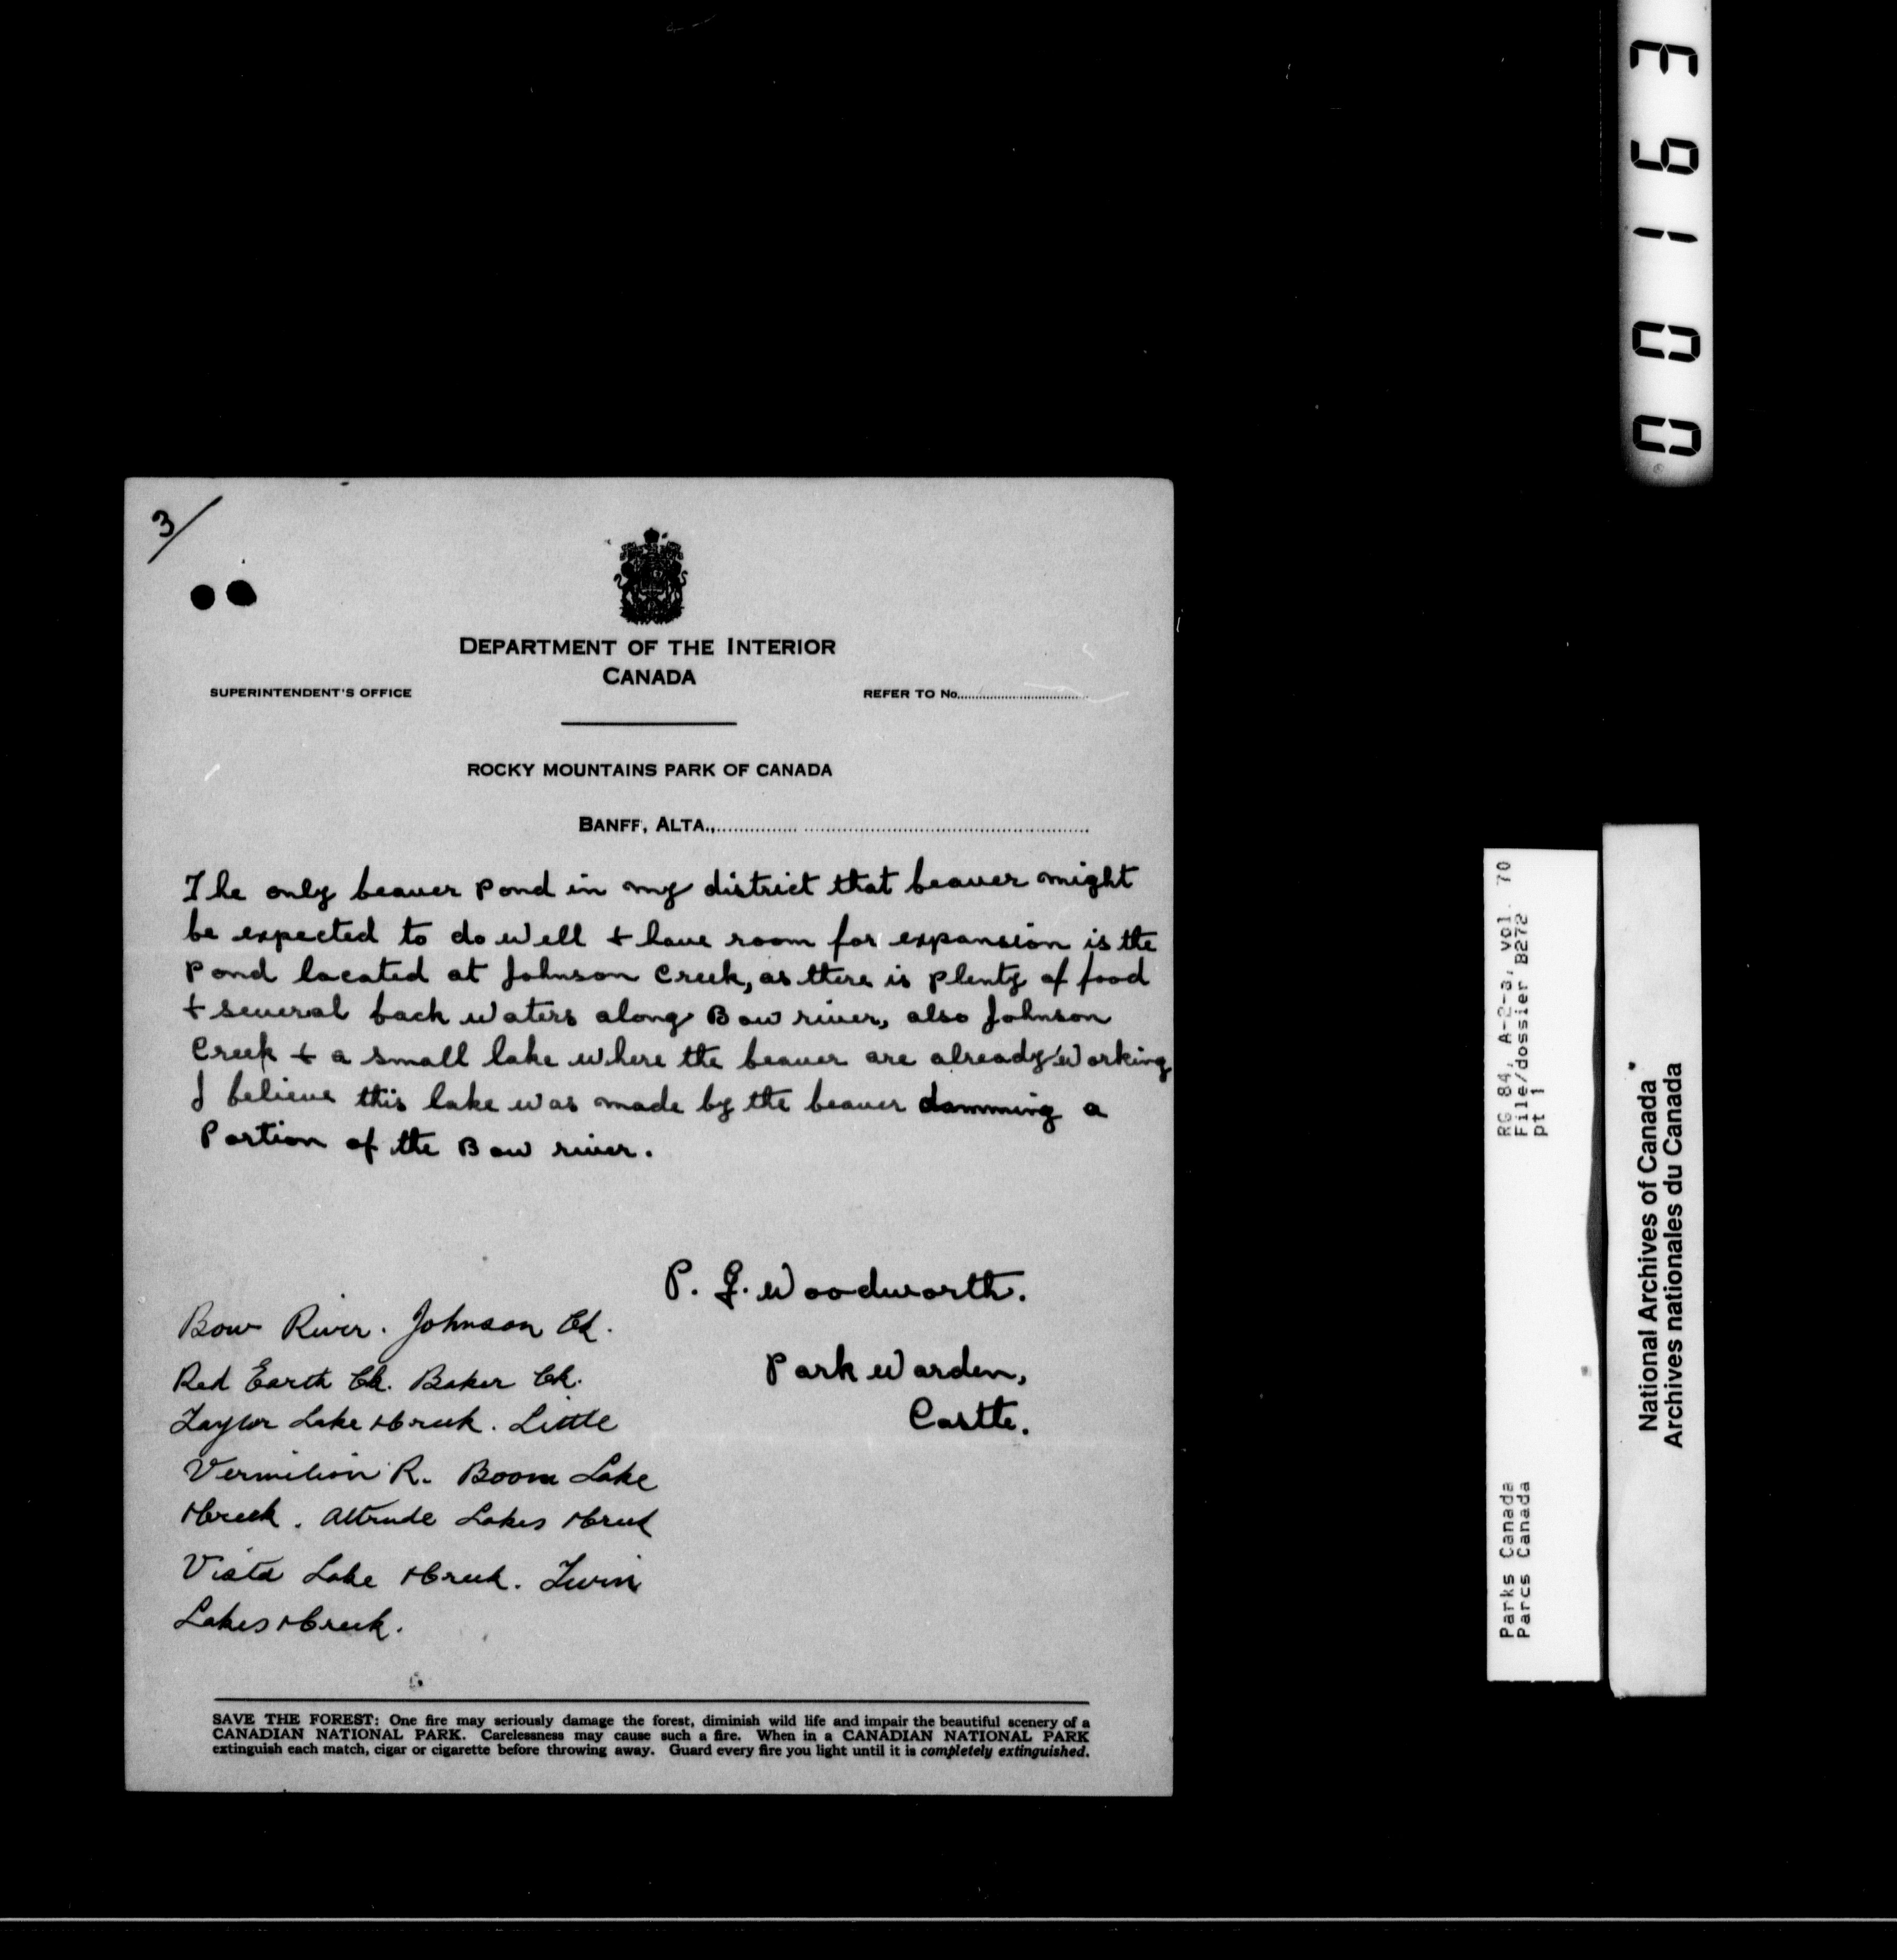 3/
DEPARTMENT OF THE INTERIOR
CANADA
SUPERINTENDENT'S OFFICE
REFER TO No.
ROCKY MOUNTAINS PARK OF CANADA
BANFF, ALTA.,
The only beaver pond in my district that beaver might
be expected to do well + have room for expansion is the
Pond located at Johnson Creek, as there is plenty of food
+ several back waters along Bow river, also Johnson
Creek + a small lake where the beaver are already working
I believe this lake was made by the beaver damming a
Portion of the Bow river.
P. G. Woodworth.
Park Warden,
Castle.
Bow River. Johnson Ck.
Red Earth Ck. Baker Ck.
Taylor Lake + Creek. Little
Vermilion R. Boom Lake
+ Creek. Altrude Lakes + Creek
Vista Lake + Creek. Twin
Lakes + Creek.
SAVE THE FOREST: One fire may seriously damage the forest, diminish wild life and impair the beautiful scenery of a
CANADIAN NATIONAL PARK. Carelessness may cause such a fire. When in a CANADIAN NATIONAL PARK
extinguish each match, cigar or cigarette before throwing away. Guard every fire you light until it is completely extinguished.
00163
RG 84, A-2-a, vol. 70
File/dossier B272
pt 1
Parks Canada
Parcs Canada
National Archives of Canada
Archives nationales du Canada